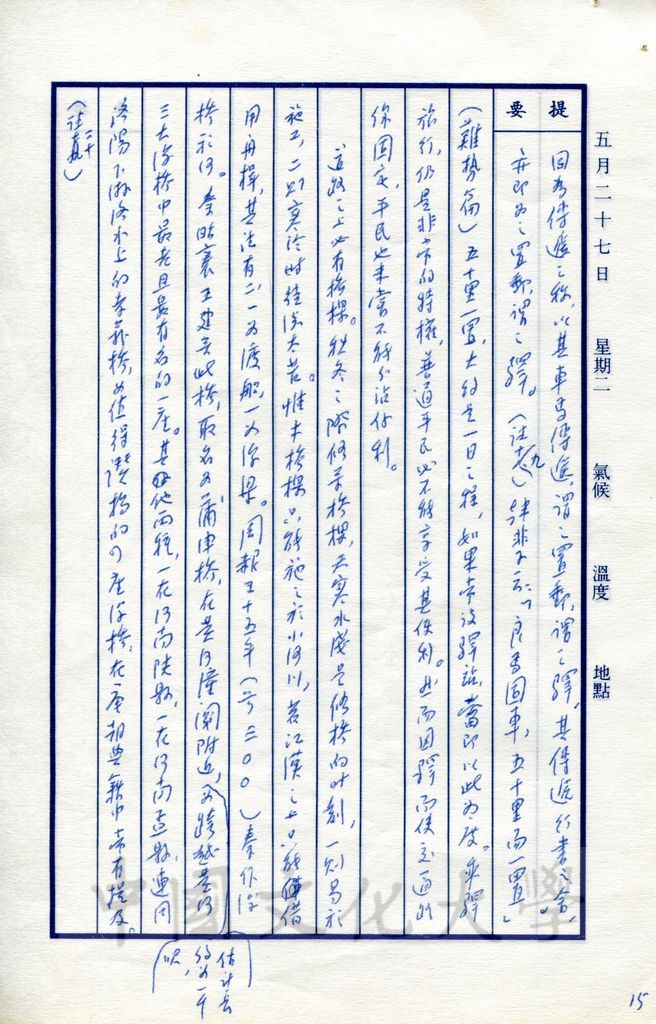 五月二十七日 星期二 氣候 溫度 地點
提要
因為傳遞之稱,以其車馬傳遞,謂之置郵,謂之驛,其傳遞行書之舍,
亦即為之置郵,謂之驛。(註九)韓非子云:「良馬固車,五十里而一置」
(難勢篇)五十里一置,大約是一日之程,如果常設驛站,當即以此為度。乘驛
旅行,仍是非常的特權,普通平民必不能享受其便利。然而因驛而使交通路
線固定,平民也未嘗不能分沾作利。
道路之上必有橋樑。秋冬之際修葺橋樑,天寒水淺是修橋的時刻,一則易於
施工,二則寒冷時徒涉太苦。惟木橋樑只能施之於小河川,若江漢之上只能借
用舟楫,其法有二,一為渡船,一為浮梁。周赧王十五年(前三〇〇)秦作浮
橋於河。秦昭襄王建立此橋,取名為蒲津橋,在黃河潼關附近,為跨越黃河
三大浮橋中最老且最有名的一座。其他兩種,一在河南陝縣,一在河南孟縣,連同
洛陽下游洛水上的孝義橋,為值得讚揚的四座浮橋,在唐朝典籍中常有提及。
(註二十)
估計長
約為一千
呎,
15
中國文化大學